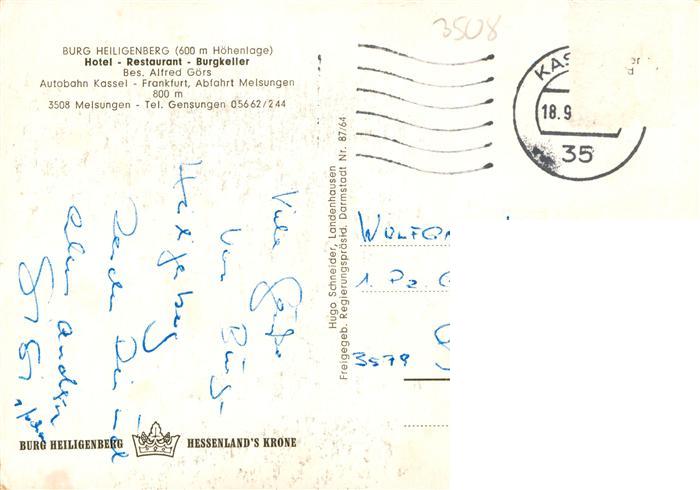 3508
BURG HEILIGENBERG (600 m Höhenlage)
Hotel - Restaurant - Burgkeller
Bes. Alfred Görs
Autobahn Kassel - Frankfurt, Abfahrt Melsungen
800 m
3508 Melsungen - Tel. Gensungen 05662/244
KAS
18.9
35
Hugo Schneider, Landenhausen
Freigegeb. Regierungspräsid. Darmstadt Nr. 87/64
Viele Grüße
von
Heiligberg
allen anderen
WOLFGA
1. Pz.
3579
BURG HEILIGENBERG HESSENLAND'S KRONE